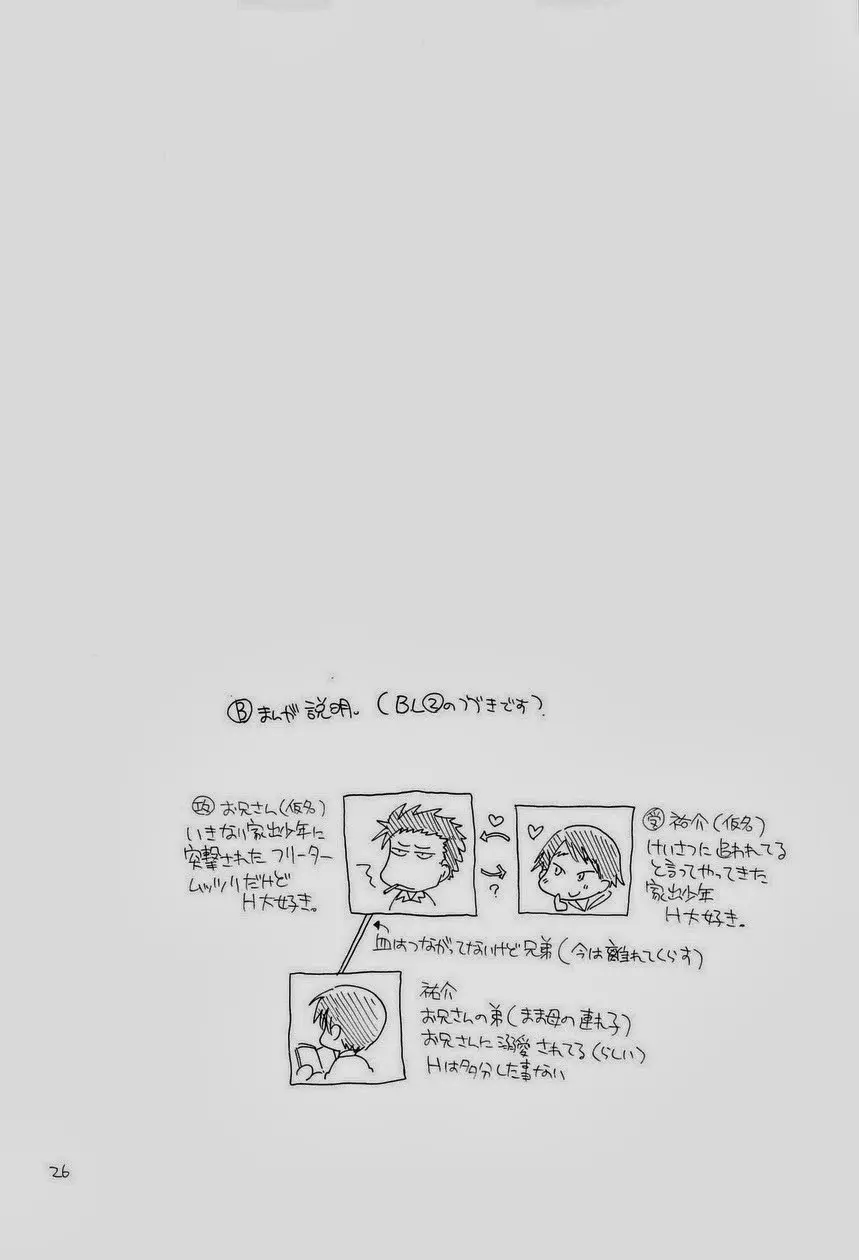 Ⓑまんが説明。(BL②のつづきです)
攻 お兄さん(仮名)
いきなり家出少年に
突撃されたフリーター
ムッツリだけど
H大好き。
?
受 祐介(仮名)
けいさつに追われてる
と言ってやってきた
家出少年
H大好き。
血はつながってないけど兄弟(今は離れてくらす)
祐介
お兄さんの弟(まま母の連れ子)
お兄さんに溺愛されてる(らしい)
Hは多分した事ない
26